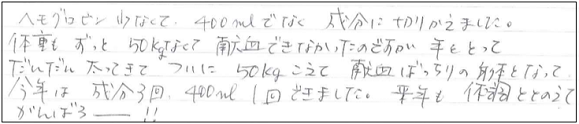 ヘモグロビン少なくて、400mlでなく成分に切りかえました。
体重もずっと50kgなくて献血できなかったのですが年をとって
だんだん太ってきてついに50kgこえて献血ばっちりの身体となって
今年は成分3回、400ml1回できました。来年も体調ととのえて
がんばろー!!